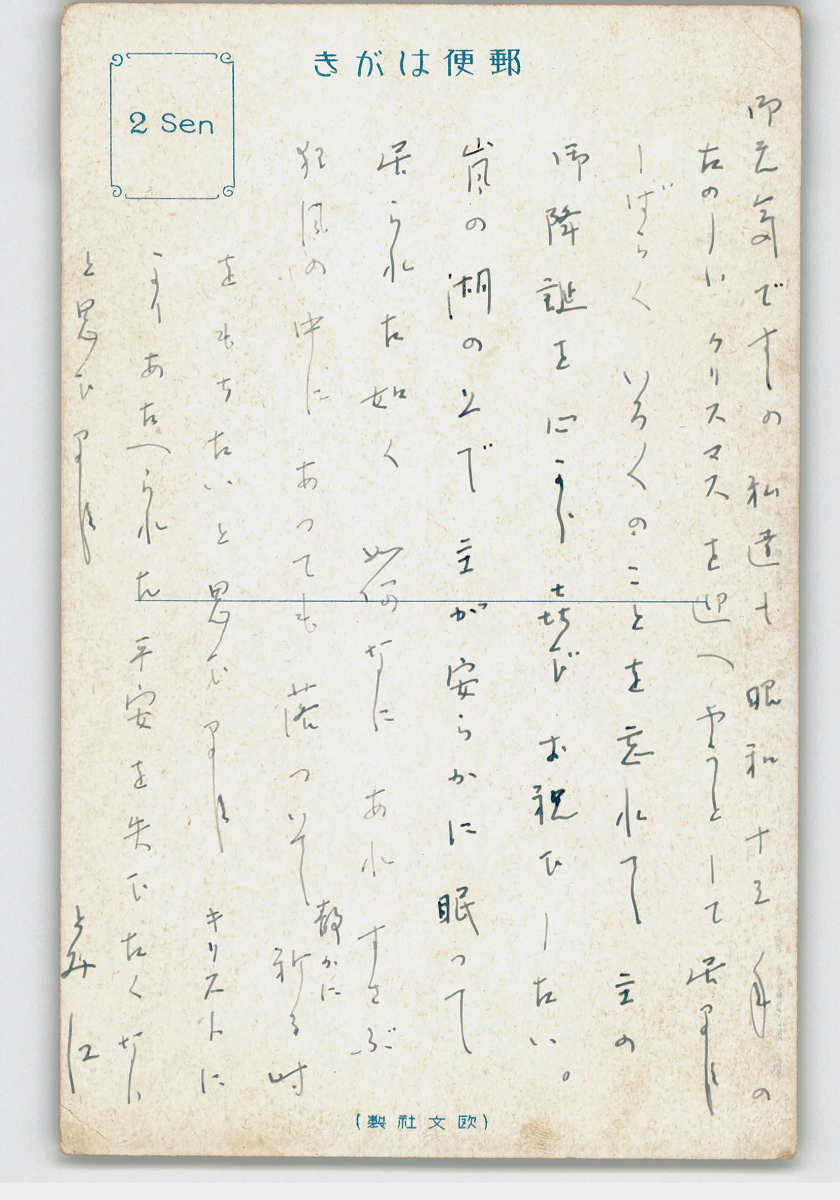 郵便はがき
2 Sen
御元気ですの 私達も 昭和十三年の
たのしい クリスマスを迎へやうとして居ます
しばらく いろ〱のことを忘れて 主の
御降誕を心から喜び お祝ひしたい。
嵐の湖の上で 主が安らかに 眠って
居られた如く 如何なに あれ すさぶ
狂風の中に あっても 落ついて 静かに 祈る時
をもちたいと思ひます キリストに
より あたへられた 平安を失ひたくない
と思ひます
とみ江
(歐文社製)